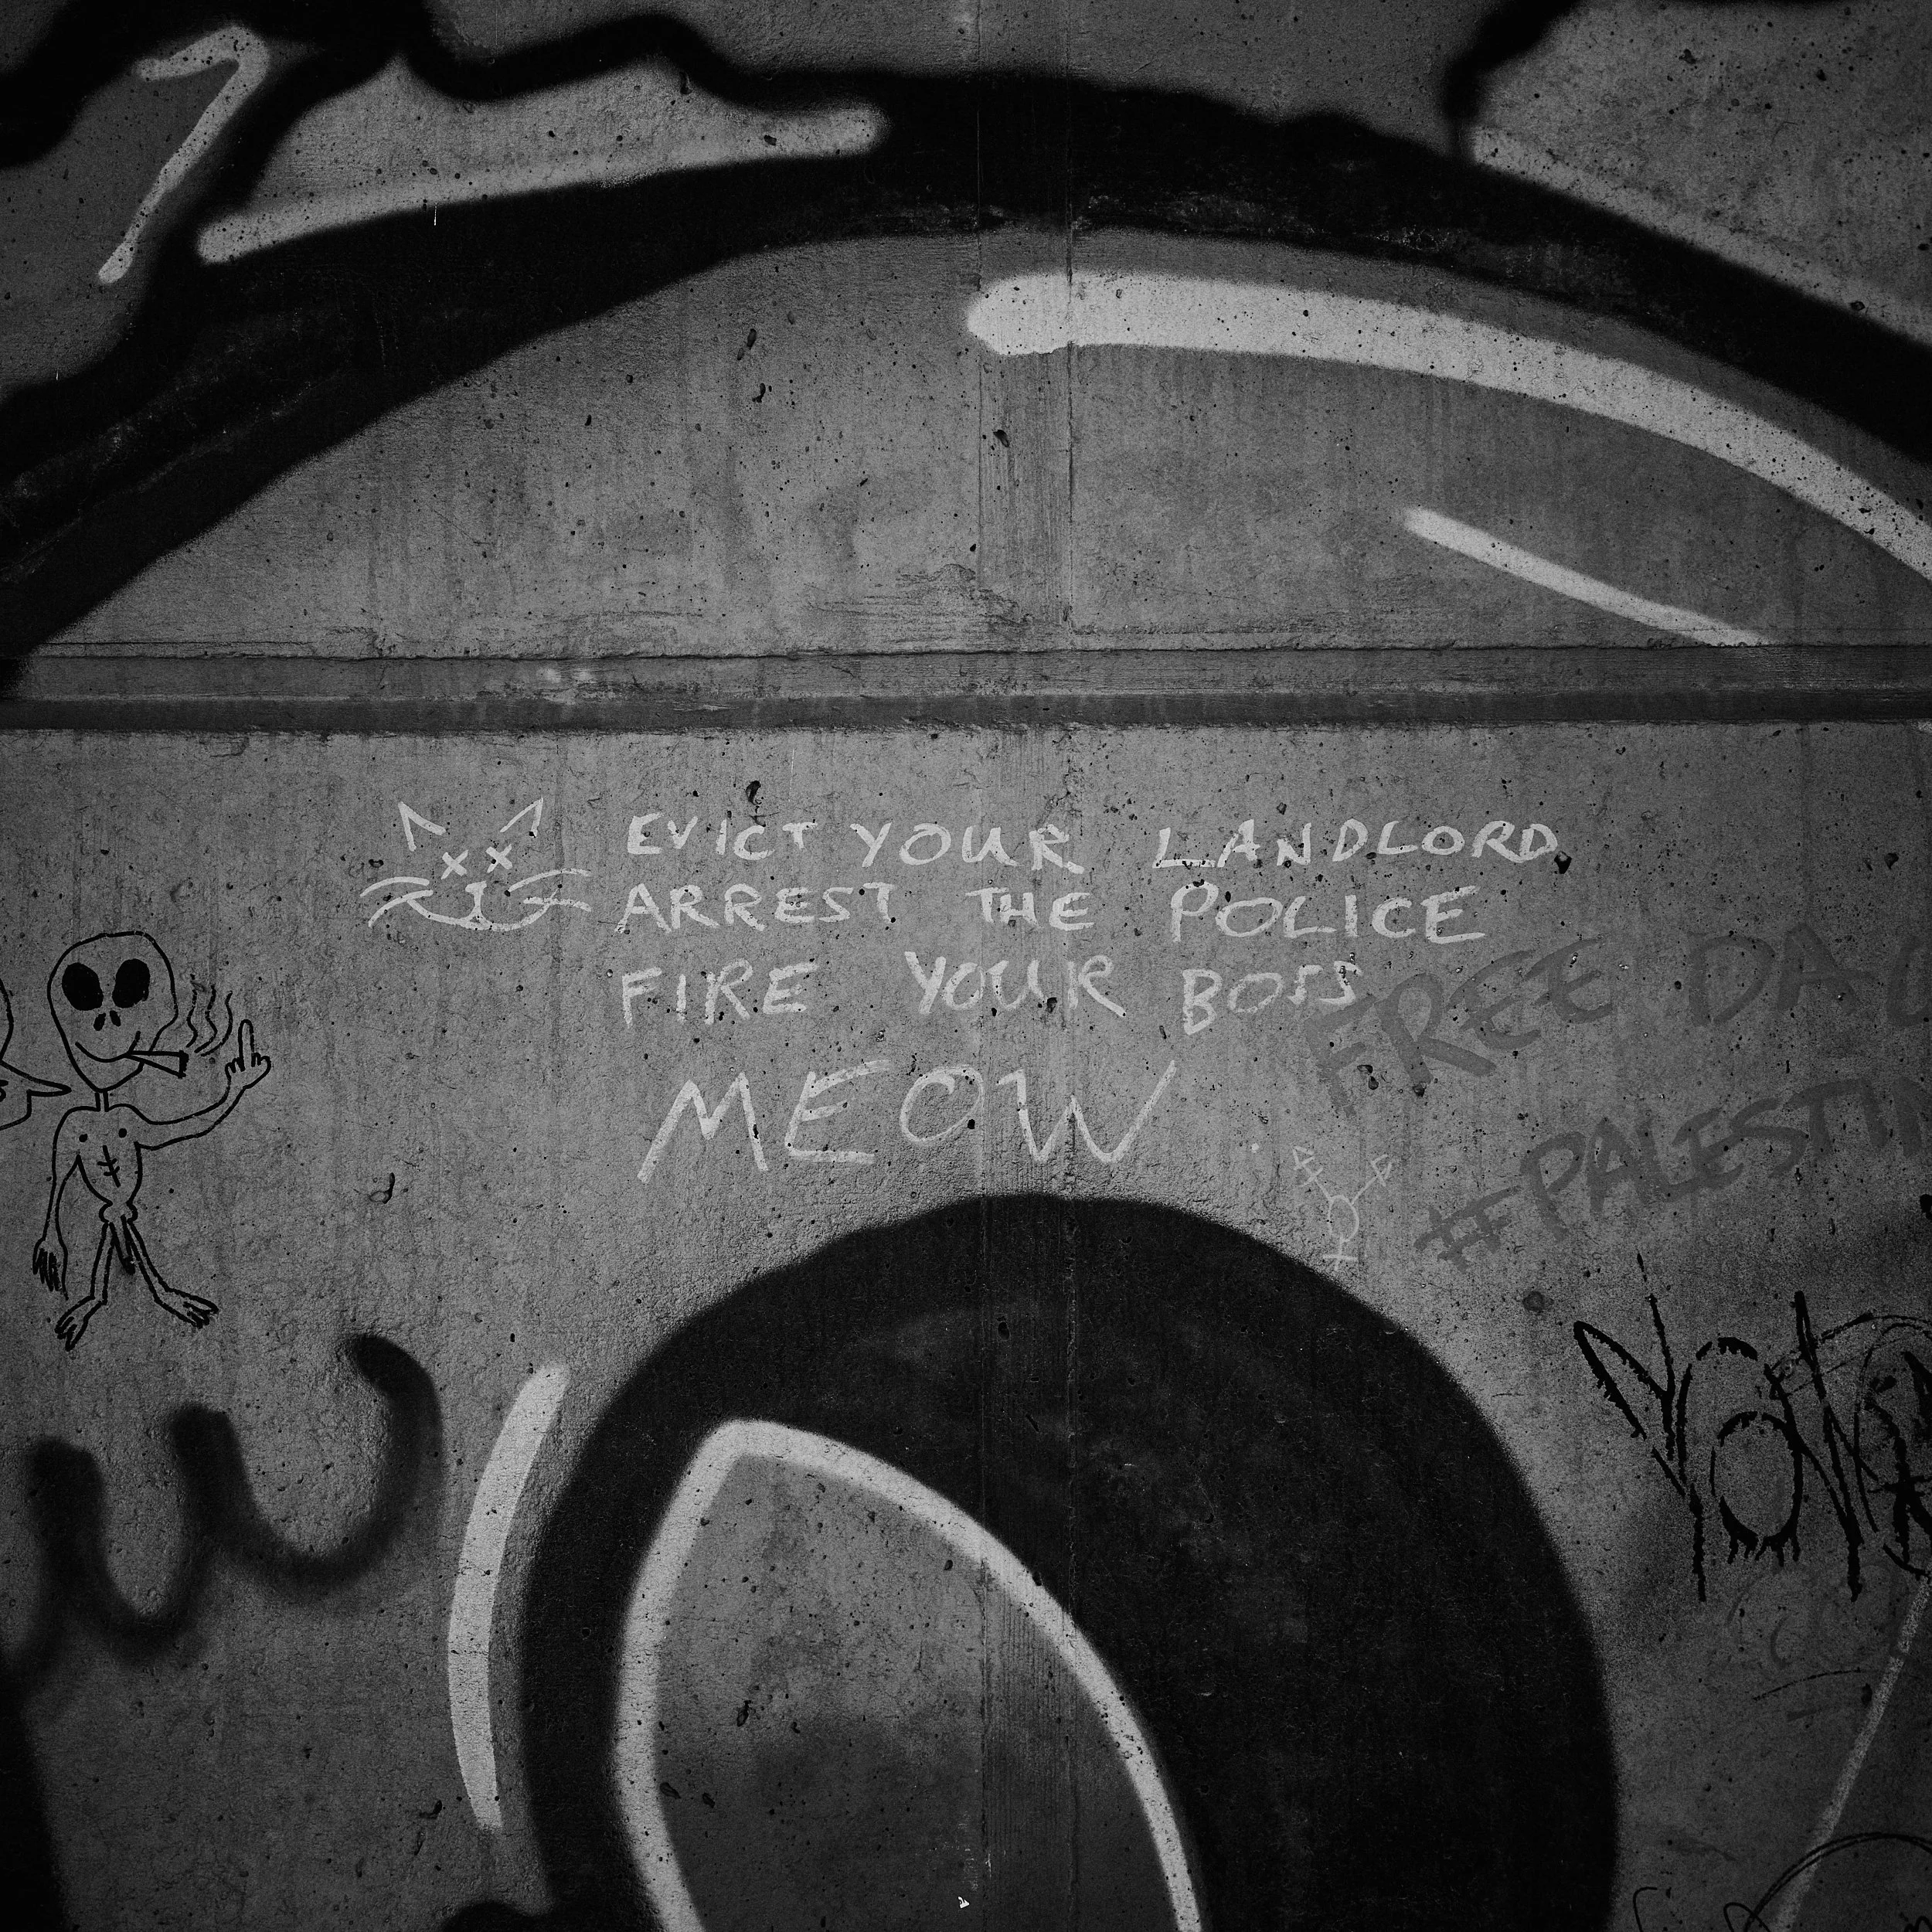 EVICT YOUR LANDLORD
ARREST THE POLICE
FIRE YOUR BOSS
MEOW
FREE
#PALESTI